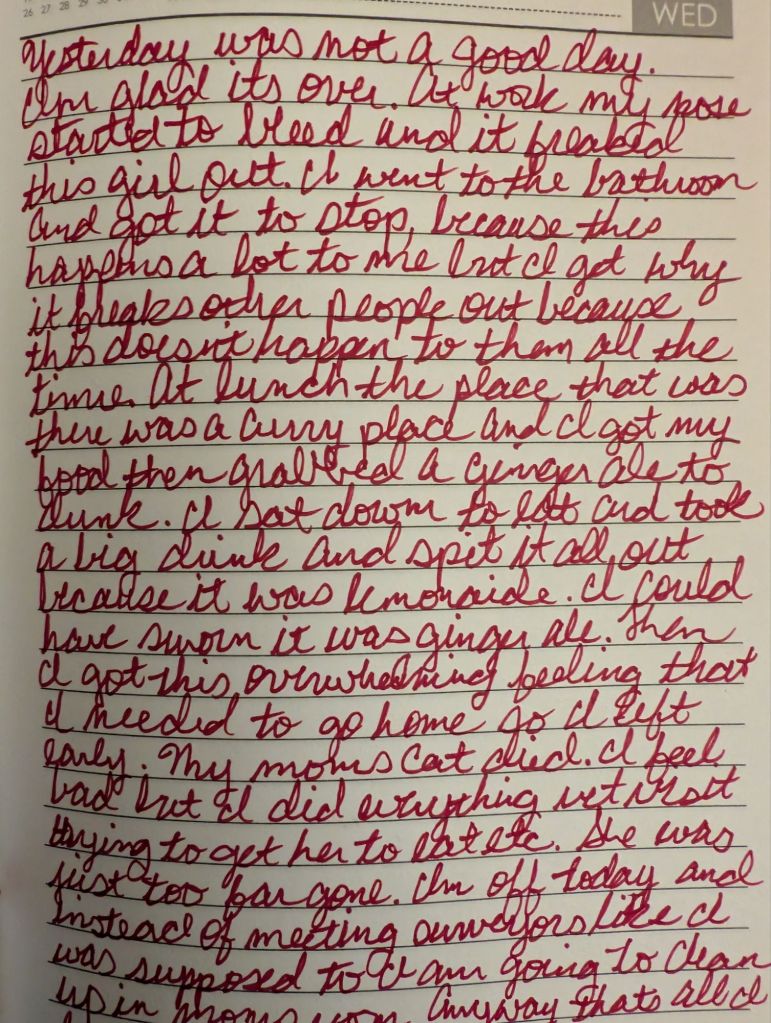 26 27 28 29 30
WED
Yesterday was not a good day.
Im glad its over. At work my nose
started to bleed and it freaked
this girl out. I went to the bathroom
and got it to stop, because this
happens a lot to me but I get why
it freaks other people out because
this doesn't happen to them all the
time. At lunch the place that was
there was a curry place and I got my
food then grabbed a ginger ale to
drink. I sat down to eat and took
a big drink and spit it all out
because it was lemonaide. I could
have sworn it was ginger ale. Then
I got this overwhelming feeling that
I needed to go home so I left
early. My moms cat died. I feel
bad but I did everything vet visit
trying to get her to eat etc. She was
just too far gone. Im off today and
instead of meeting surveyors like I
was supposed to I am going to clean
up in moms room. Anyway thats all I